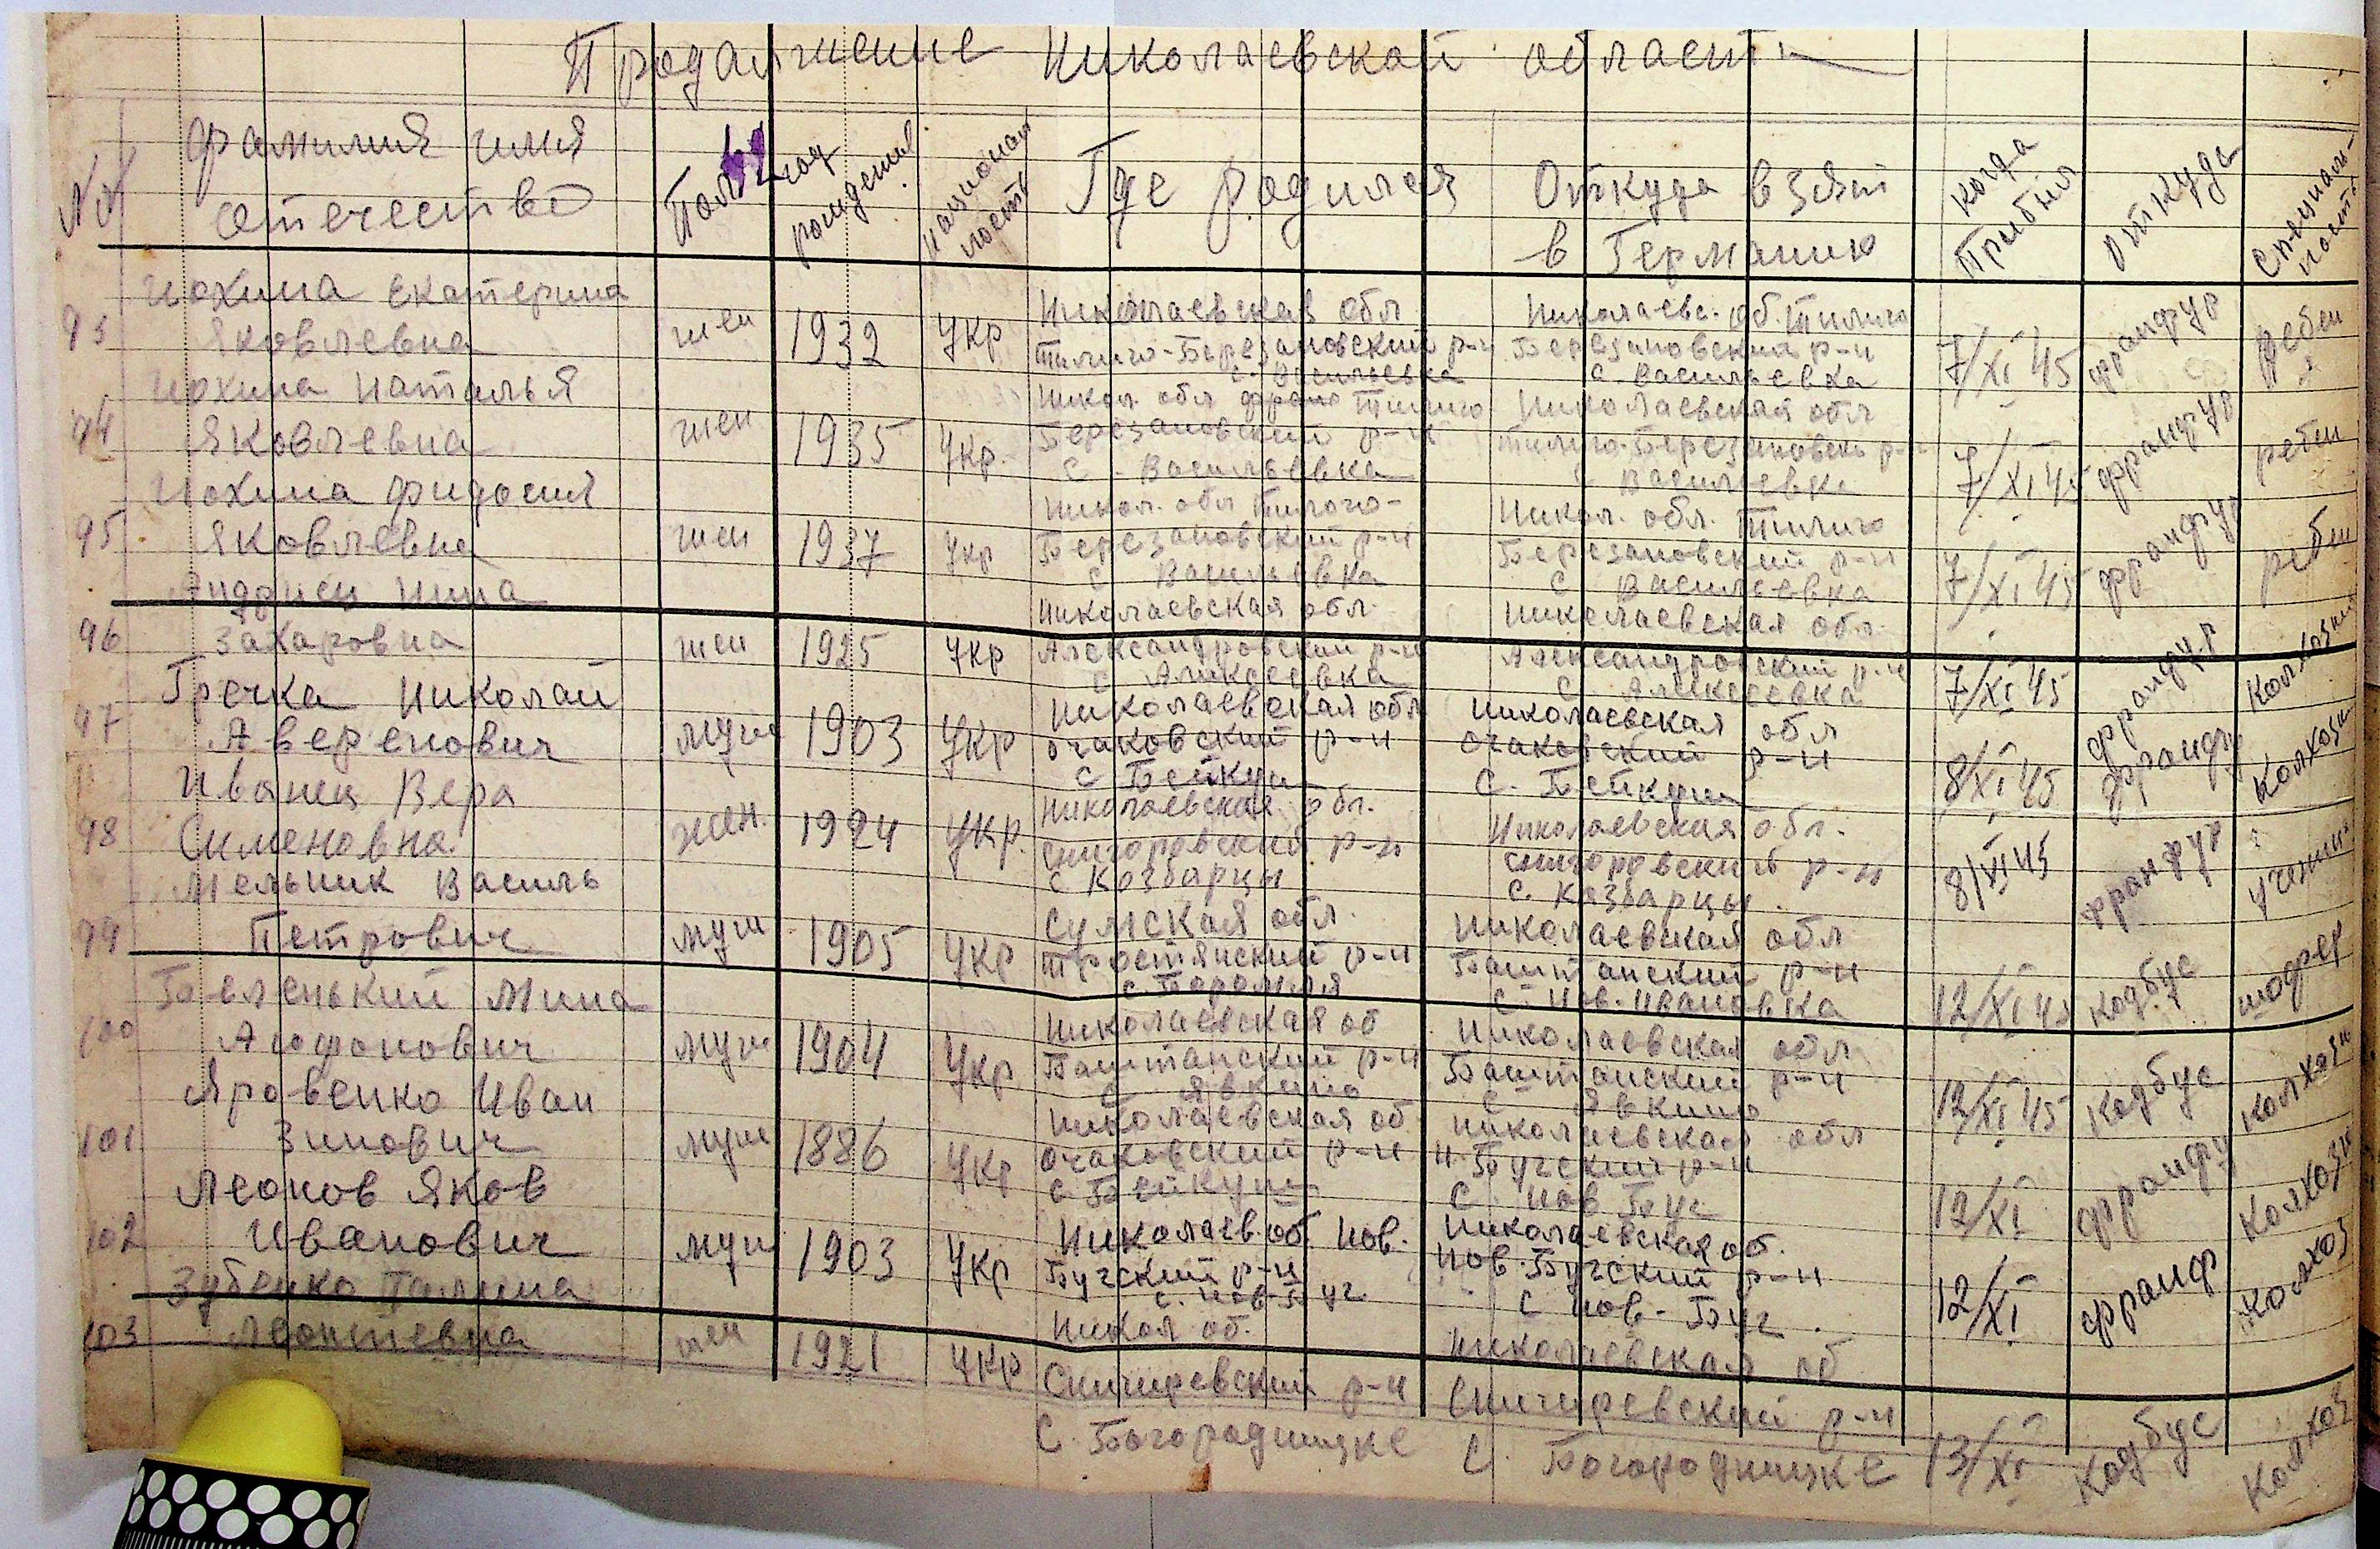 Продалжение Николаевской области
№ Фамилия имя отечество Пол год рождения национальность Где родился Откуда взят в Германию когда Прибыл откуда Специальность
Иохина Екатерина Николаевская обл Николаевс. об. Тилиго
93 Яковлевна жен 1932 Укр Тилиго-Березановский р-н Березановский р-н 7/XI 45 франфур ребен
с. Васильевка с. Васильевка
Иохина Наталья Никол. обл Тилиго Николаевская обл
94 Яковлевна жен 1935 Укр. Березановский р-н Тилиго-Березановск р-н 7/XI 45 франфур ребен
с. Васильевка Васильевка
Иохина Фидосия Никол. обл Тилого- Никол. обл. Тилиго
95 Яковлевна жен 1937 Укр Березановский р-н Березановский р-н 7/XI 45 франфур ребен
с Васильевка с Васильевка
Андриец Нина Николаевская обл. Николаевская обл.
96 Захаровна жен 1925 Укр Александровский р-н Александровский р-н 7/XI 45 франфур Колхозник
с Аликсеевка с. Аликсеевка
Гречка Николай Николаевская обл Николаевская обл
97 Аверенович муж 1903 Укр очаковский р-н очаковский р-н 8/XI 45 франфу Колхозн
с Бейкуш с. Бейкуш
Иванец Вера Николаевская обл. Николаевская обл.
98 Сименовна жен. 1924 Укр. снигоровский р-н снигоровский р-н 8/XI 45 франфур учениц
с Козбарцы с. Казбарцы
Мельник Василь Сумская обл. Николаевская обл
99 Петрович муж 1905 Укр Тростянский р-н Баштанский р-н 12/XI 45 кодбус шофер
с. Боромля с. Нов. Ивановка
Беленький Мина Николаевская об Николаевская обл
100 муж 1904 Укр Баштанский р-н Баштанский р-н 12/XI 45 Кодбус колхозн
с Явкино с Явкино
Яровенко Иван Николаевская об Николаевская обл
101 Зинович муж 1886 Укр очаковский р-н Н. Бугский р-н 12/XI франфу Колхозн
с Бейкуш с. Нов Буг
Леонов Яков Николаев. об. Нов. Николаевская об.
102 Иванович муж 1903 Укр Бугский р-н Нов. Бугский р-н 12/XI франф колхоз
с. Нов-Буг с Нов-Буг
Зубенко Галина Никол об. Николаевская об
103 Леонтевна жен 1921 Укр Снигиревский р-н Снигиревский р-н 13/XI Кодбус Колхоз
с. Богородицке с. Богородицке